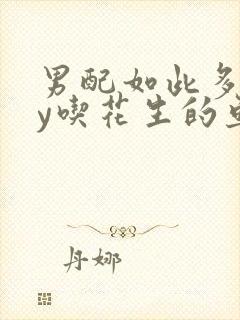 男配如此多
y喫花生的
丹娜